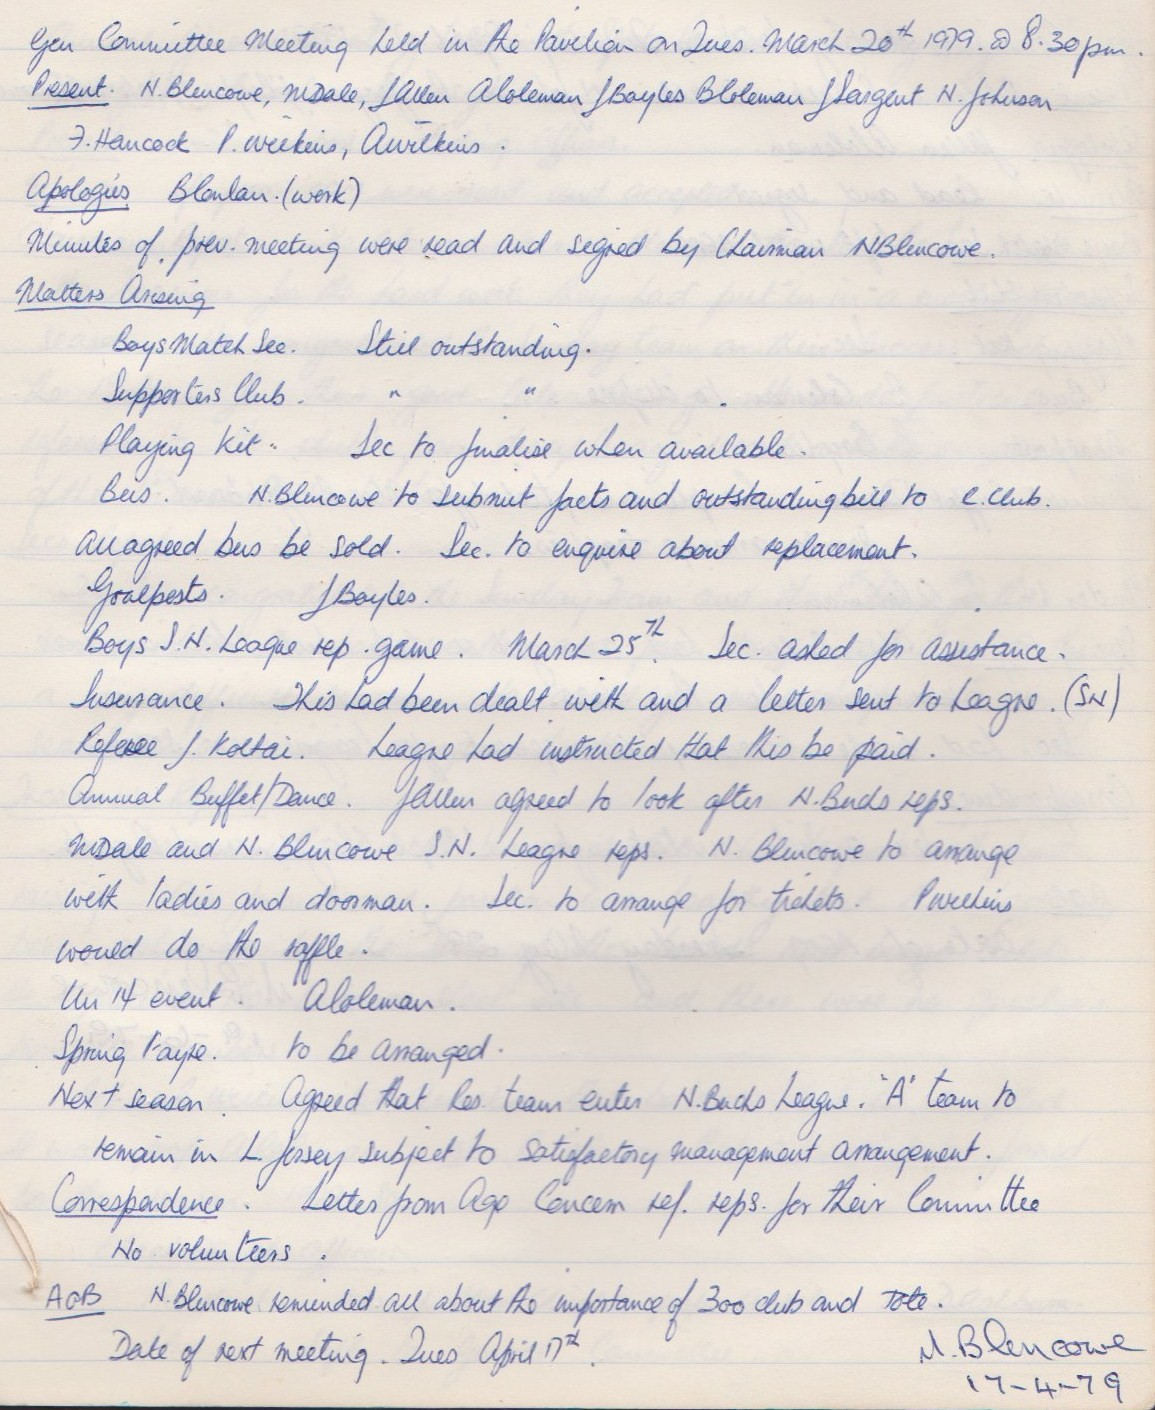 Gen Committee Meeting held in the Pavilion on Tues. March 20th 1979. @ 8.30pm.
Present. N. Blencowe, MDale, JAllen AColeman JBayles BColeman JSargent N. Johnson
F. Hancock P. Wilkins, AWilkins.
Apologies (work)
Minutes of prev. meeting were read and signed by Chairman NBlencowe.
Matters Arising
Boys Match Sec. Still outstanding.
Supporters Club. " "
Playing Kit. Sec to finalise when available.
Bus. N. Blencowe to submit facts and outstanding bill to C. Club.
All agreed bus be sold. Sec. to enquire about replacement.
Goalposts. JBayles.
Boys S.N. League rep. game. March 25th. Sec. asked for assistance.
Insurance. This had been dealt with and a letter sent to League. (SN)
Referee J. Koltai. League had instructed that this be paid.
Annual Buffet/Dance. JAllen agreed to look after N. Bucks reps.
MDale and N. Blencowe S.N. League reps. N. Blencowe to arrange
with ladies and doorman. Sec. to arrange for tickets. PWilkins
would do the raffle.
Un 14 event. AColeman.
Spring Fayre. to be arranged.
Next season. Agreed that Res. team enter N. Bucks League. "A" team to
remain in L. Jersey subject to satisfactory management arrangement.
Correspondence. Letter from Age Concern ref. reps. for their Committee
No volunteers.
AOB N. Blencowe reminded all about the importance of 300 club and Tote.
Date of next meeting. Tues April 17th.
N. Blencowe
17-4-79